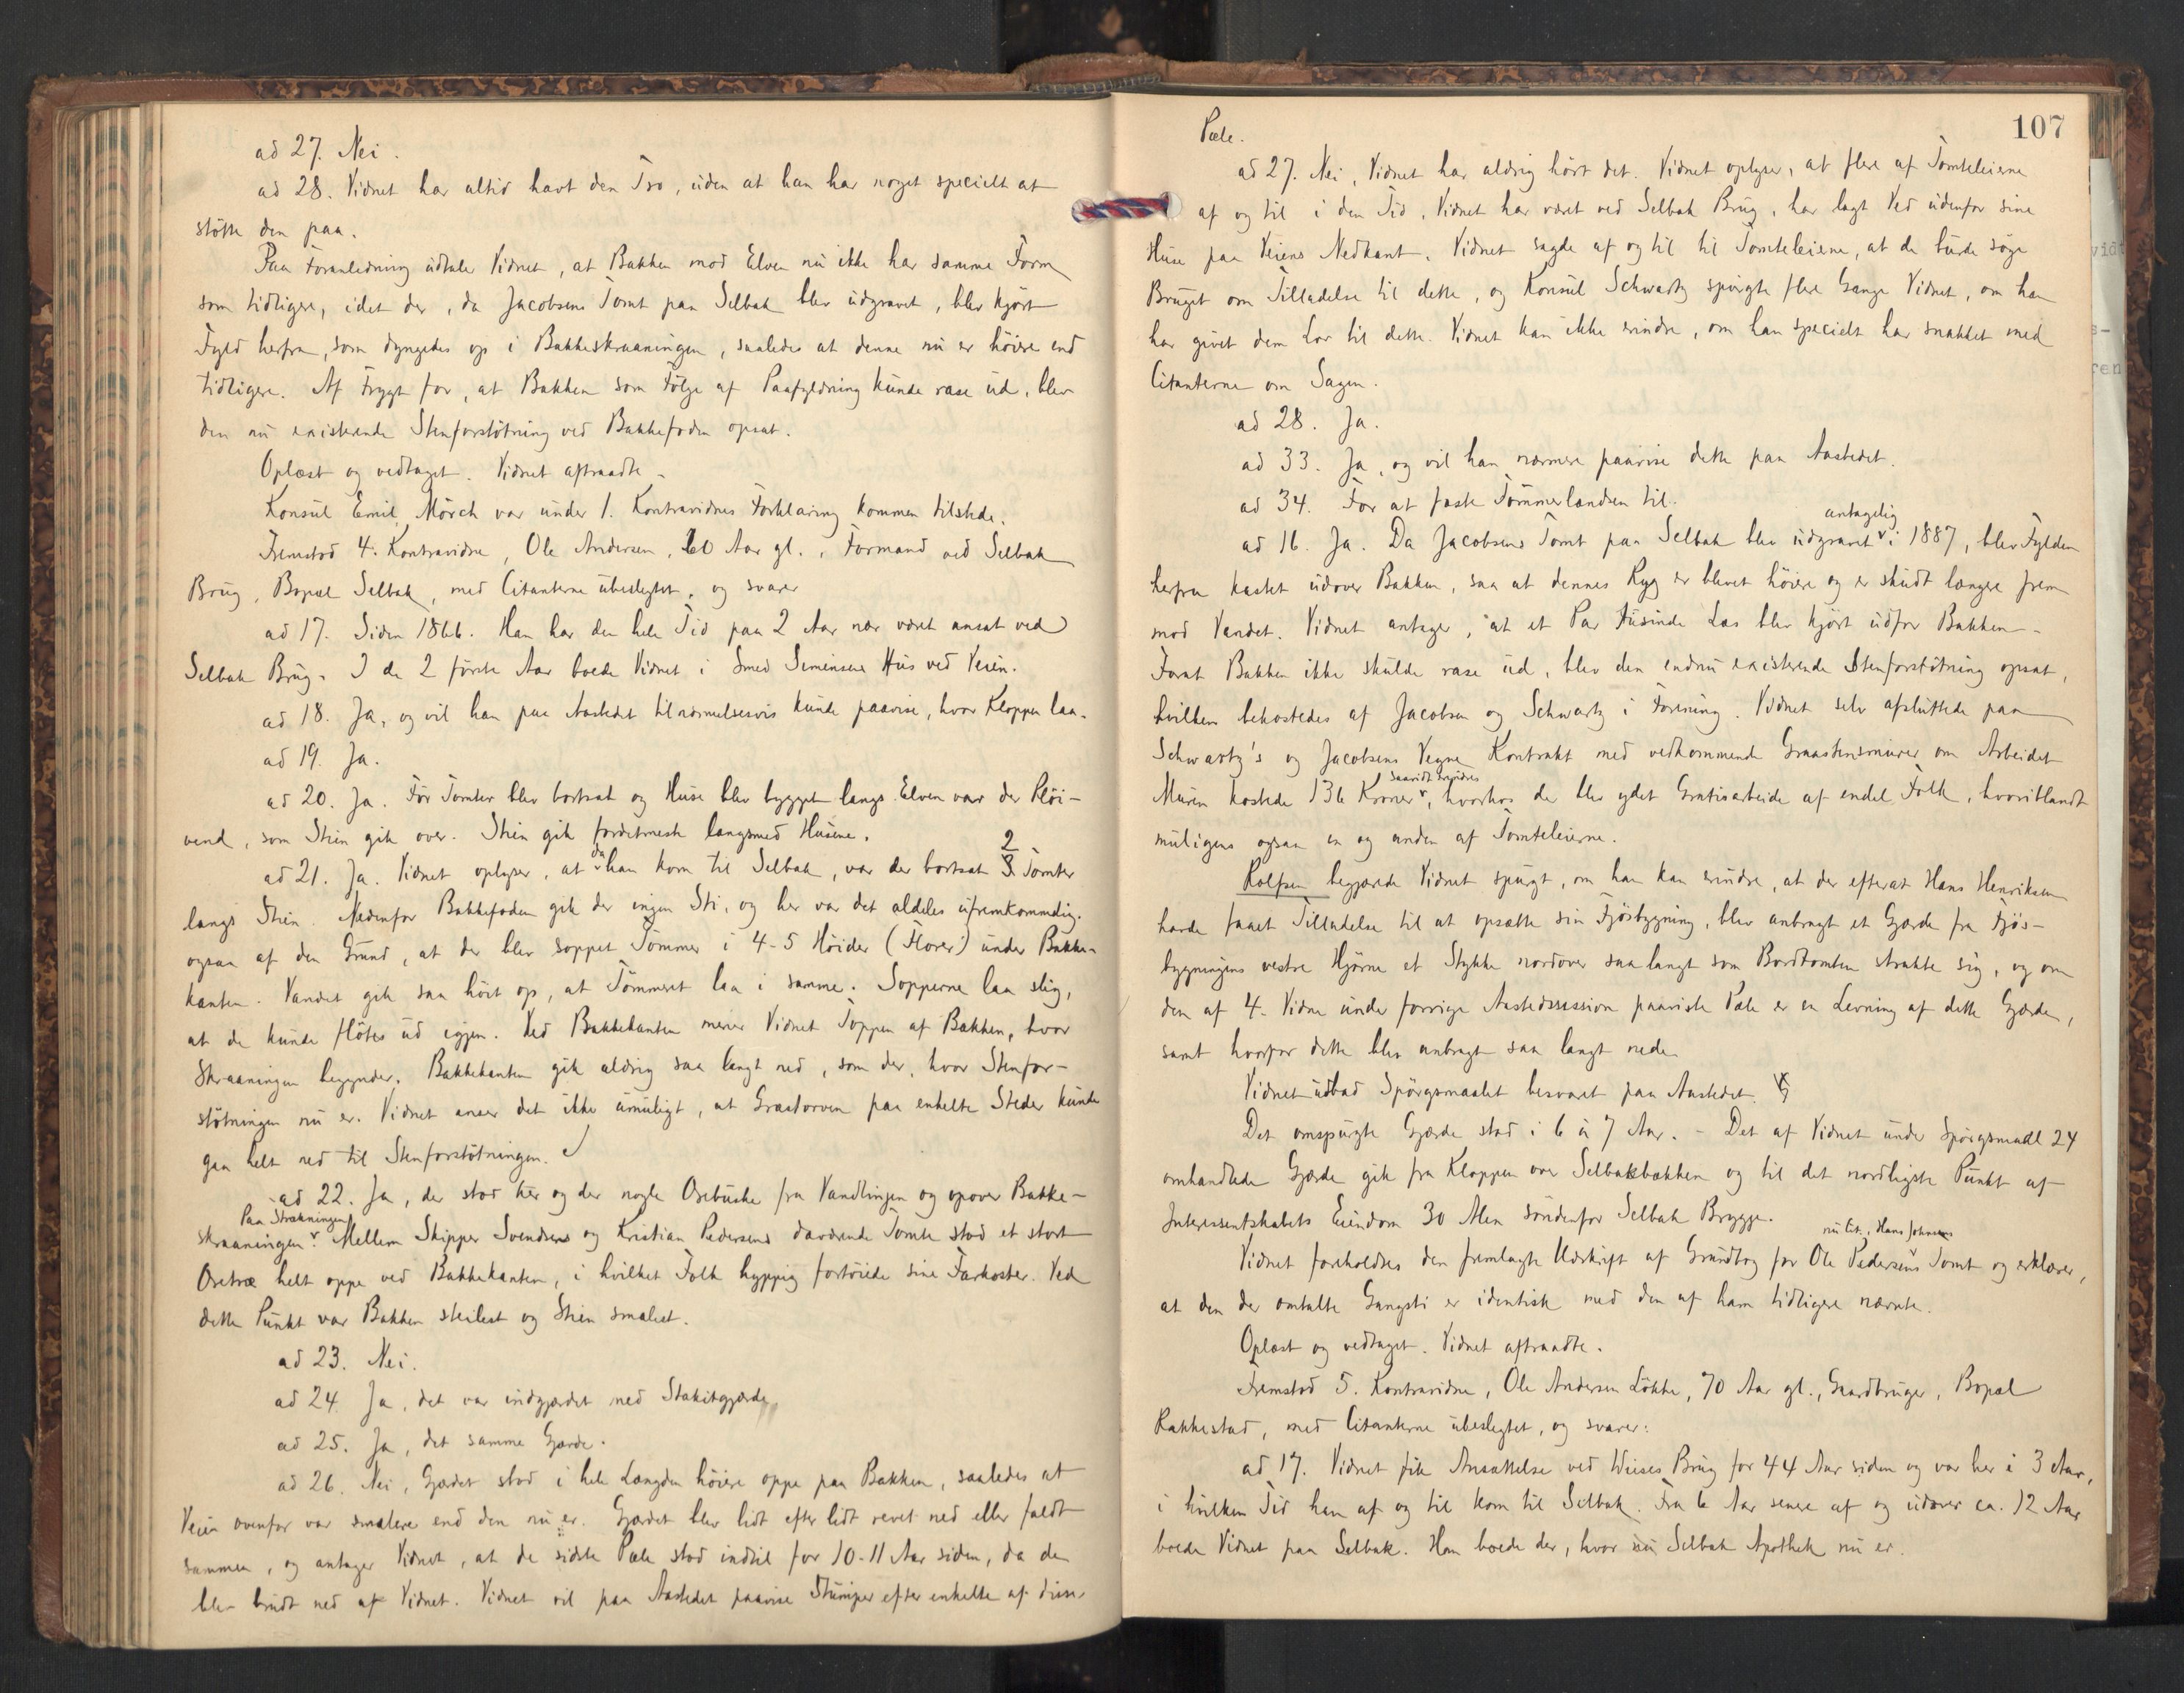 ad 27. Nei.
ad 28. Vidnet har altid havt den Tro, uden at han har noget specielt at
støtte den paa.
Paa Foranledning udtaler Vidnet, at Bakken mod Elven nu ikke har samme Form
som tidligere, idet der, da Jacobsens Tomt paa Selbak blev udgravet, blev kjørt
Fyld herfra, som dyngedes op i Bakkeskraaningen, saaledes at denne nu er høiere end
tidligere. Af Frygt for, at Bakken som Følge af Paafyldning kunde rase ud, blev
den nu existerende Stenforstøtning ved Bakkefoden opsat.
Oplæst og vedtaget. Vidnet aftraadte.
Konsul Emil Mørch var under 1. Kontravidnes Forklaring kommen tilstede.
Fremstod 4. Kontravidne, Ole Andersen, 60 Aar gl., Formand ved Selbak
Brug, Bopæl Selbak, med Citanterne ubeslegtet, og svarer
ad 17. Siden 1866. Han har den hele Tid paa 2 Aar nær været ansat ved
Selbak Brug. I de 2 første Aar boede Vidnet i Smed Simensens Hus ved Veien.
ad 18. Ja, og vil han paa Aastedet tilnærmelsesvis kunde paavise, hvor Kloppen laa.
ad 19. Ja.
ad 20. Ja. Før Tomter blev bortsat og Huse blev bygget langs Elven var der Pløi-
vend, som Stien gik over. Stien gik fordetmeste langsmed Husene.
ad 21. Ja. Vidnet oplyser, at da han kom til Selbak, var der bortsat 2 Tomter
langs Stien. Nedenfor Bakkefoden gik der ingen Sti, og her var det aldeles ufremkommelig.
ogsaa af den Grund, at der blev soppet Tømmer i 4-5 Høider (Florer) under Bakke-
kanten. Vandet gik saa høit op, at Tømmeret laa i samme. Sopperne laa slig,
at de kunde fløtes ud igjen. Ved Bakkekanten mener Vidnet Toppen af Bakken, hvor
Skraaningen begynder. Bakkekanten gik aldrig saa langt ned, som der, hvor Stenfor-
støtningen nu er. Vidnet anser det ikke umuligt, at Græstorven paa enkelte Steder kunde
gaa helt ned til Stenforstøtningen.
ad 22. Ja, der stod her og der nogle Orebuske fra Vandlinjen og opover Bakke-
Paa Strækningen
skraaningen. Mellem Skipper Svendsens og Kristian Pedersens daværende Tomte stod et stort
Oretræ helt oppe ved Bakkekanten, i hvilket Folk hyppig fortøiede sine Farkoster. Ved
dette Punkt var Bakken steilest og Stien smalest.
ad 23. Nei.
ad 24. Ja, det var indgjærdet med Stakitgjærde.
ad 25. Ja, det samme Gjærde.
ad 26. Nei, Gjærdet stod i hele Længden høiere oppe paa Bakken, saaledes at
Veien ovenfor var smalere end den nu er. Gjærdet blev lidt efter lidt revet ned eller faldt
sammen, og antager Vidnet, at de sidste Pæle stod indtil for 10-11 Aar siden, da de
blev brudt ned af Vidnet. Vidnet vil paa Aastedet paavise Stumper efter enkelte af disse
107
Pæle.
ad 27. Nei, Vidnet har aldrig hørt det. Vidnet oplyser, at flere af Tomteleierne
af og til i den Tid, Vidnet har været ved Selbak Brug, har lagt Ved udenfor sine
Huse paa Veiens Nedkant. Vidnet sagde af og til til Tomteleierne, at de burde søge
Bruget om Tilladelse til dette, og Konsul Schwartz spurgte flere Gange Vidnet, om han
har givet dem Lov til dette. Vidnet kan ikke erindre, om han specielt har snakket med
Citanterne om Sagen.
ad 28. Ja.
ad 33. Ja, og vil han nærmere paavise dette paa Aastedet.
ad 34. For at fæste Tømmerlændsen til.
antagelig
ad 16. Ja. Da Jacobsens Tomt paa Selbak blev udgravet i 1887, blev Fylden
herfra kastet udover Bakken, saa at dennes Ryg er blevet høiere og er skudt længere frem
mod Vandet. Vidnet antager, at et Par Tusinde Læs blev kjørt udfor Bakken.
Forat Bakken ikke skulde rase ud, blev den endnu existerende Stenforstøtning opsat,
hvilken bekostedes af Jacobsen og Schwartz i Forening. Vidnet selv afsluttede paa
Schwartz's og Jacobsens Vegne Kontrakt med vedkommende Graastensmurer om Arbeidet
saavidt erindres
Muren kostede 136 Kroner, hvorhos der blev ydet Gratisarbeide af endel Folk, hvoriblandt
muligens ogsaa en og anden af Tomteleierne.
Rolfsen begjærede Vidnet spurgt, om han kan erindre, at der efterat Hans Henriksen
havde faaet Tilladelse til at opsætte sin Fjøsbygning, blev anbragt et Gjærde fra Fjøs-
bygningens vestre Hjørne et Stykke nordover saa langt som Bordtomten strakte sig, og om
den af 4. Vidne under forrige Aastedssession paaviste Pæle er en Levning af dette Gjærde,
samt hvorfor dette blev anbragt saa langt nede
Vidnet udbad Spørgsmaalet besvaret paa Aastedet.
Det omspurgte Gjærde stod i 6 à 7 Aar. - Det af Vidnet under Spørgsmaal 24
omhandlede Gjærde gik fra Kloppen over Selbakbækken og til det nordligste Punkt af
Interessentskabets Eiendom 30 Alen søndenfor Selbak Brygge.
nu Cit. Hans Johnsens
Vidnet foreholdtes den fremlagte Udskrift af Grundbog for Ole Pedersens Tomt og erklærer,
at den der omtalte Gangsti er identisk med den af ham tidligere nævnte.
Oplæst og vedtaget. Vidnet aftraadte.
Fremstod 5. Kontravidne, Ole Andersen Løkke, 70 Aar gl., Gaardbruger, Bopæl
Rakkestad, med Citanterne ubeslegtet, og svarer:
ad 17. Vidnet fik Ansættelse ved Wieses Brug for 44 Aar siden og var her i 3 Aar,
i hvilken Tid han af og til kom til Selbak. Fra 6 Aar senere af og udover ca. 12 Aar
boede Vidnet paa Selbak. Han boede der, hvor Selbak Apothek nu er.